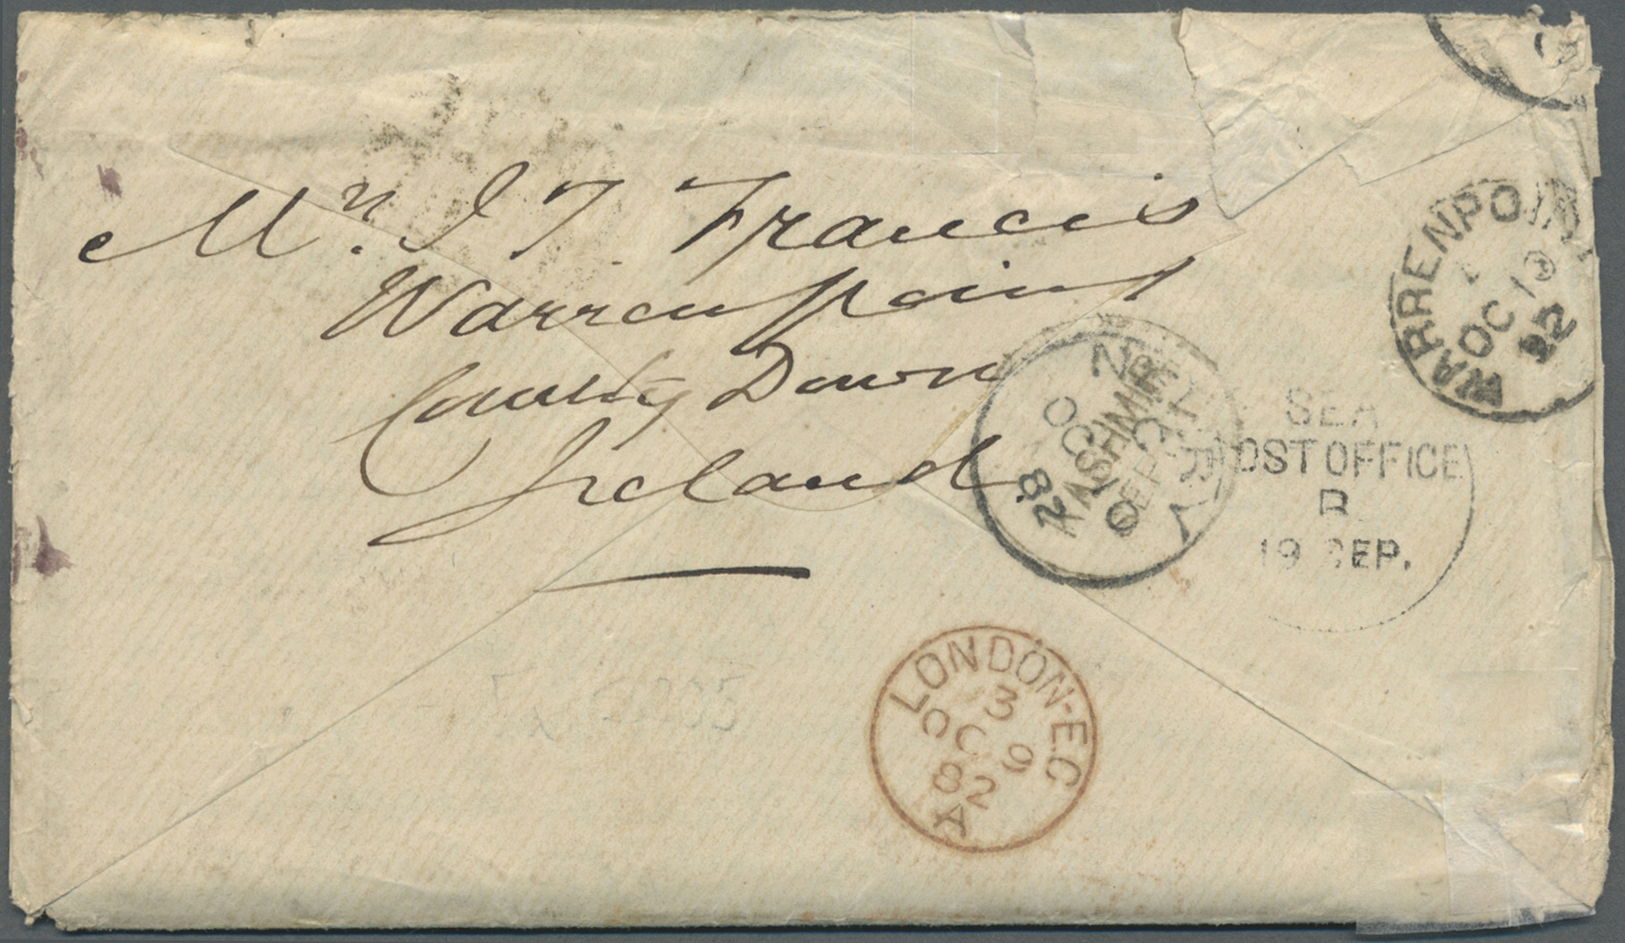 Mr. J T Francis
Warrenpoint
County Down
Ireland
WARRENPOINT
OC 10
82
NEWRY
OC 10
82
KASHMIR
SEP
SEA
POST OFFICE
B
19 SEP.
LONDON-EC
3
OC 9
82
A